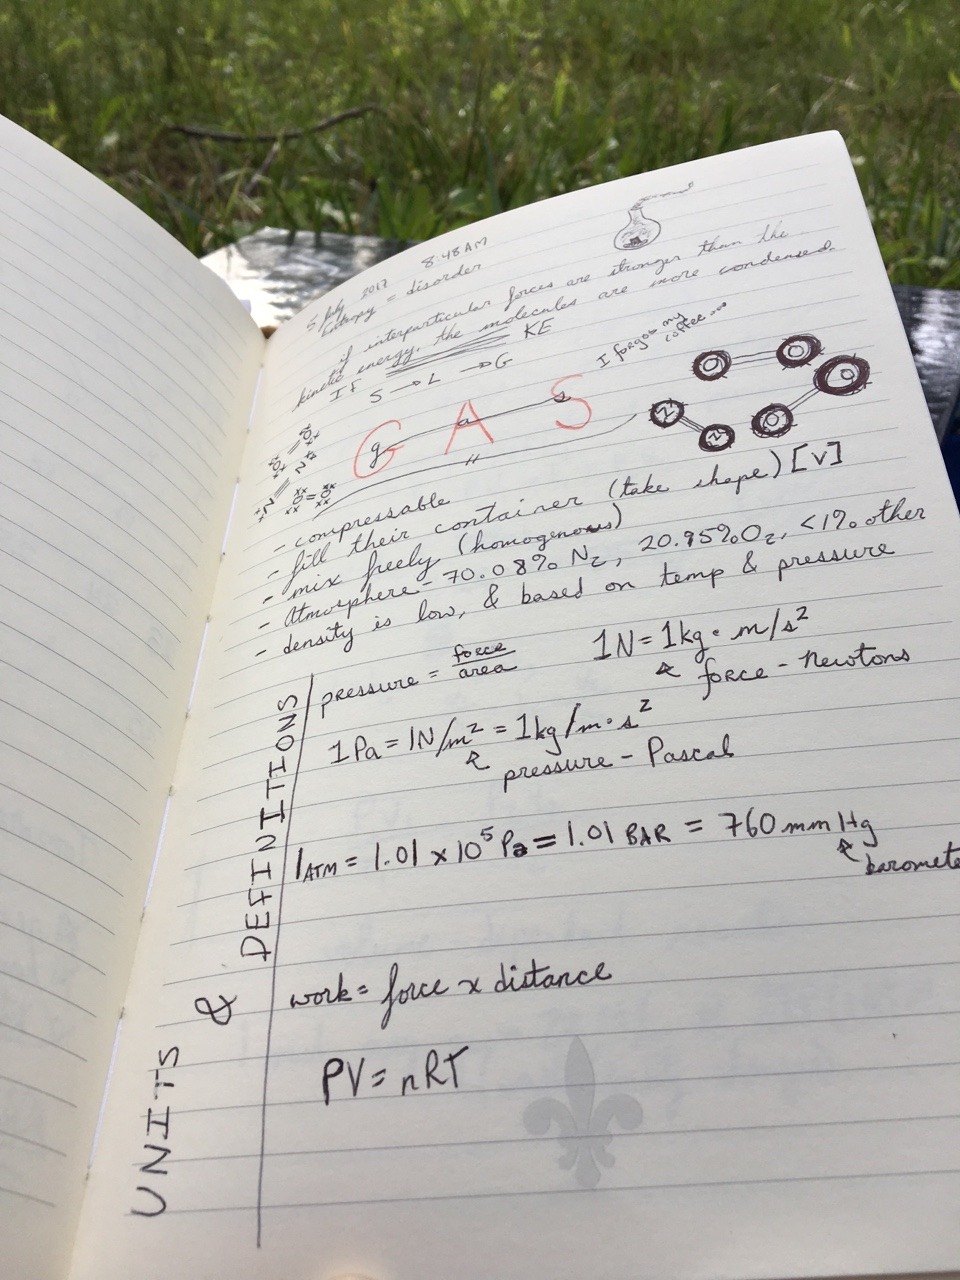 5 July 2017 8:48AM
Entropy = disorder
if interparticular forces are stronger than the
kinetic energy, the molecules are more condensed.
IF KE
S → L → G
I forgot my
coffee...
GAS
g a s
O O
N N
O O
N N
O=O
- compressable
- fill their container (take shape) [V]
- mix freely (homogenous)
- Atmosphere - 70.08% N2, 20.95% O2, <1% other
- density is low, & based on temp & pressure
UNITS & DEFINITIONS
pressure = force/area
1N = 1kg · m/s²
force - Newtons
1Pa = 1N/m² = 1kg/m·s²
pressure - Pascal
1ATM = 1.01 x 10⁵ Pa = 1.01 BAR = 760 mm Hg
baromete
work = force x distance
PV = nRT